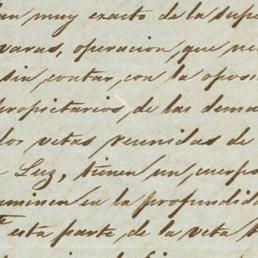 an muy exacto de la supe
varas, operacion, que ne
sin contar, con la oposi
propietarios, de las dema
los vetas reunidas de
Luz, tienen un, cuerpo
aminen en la profundida
esta parte, de la veta